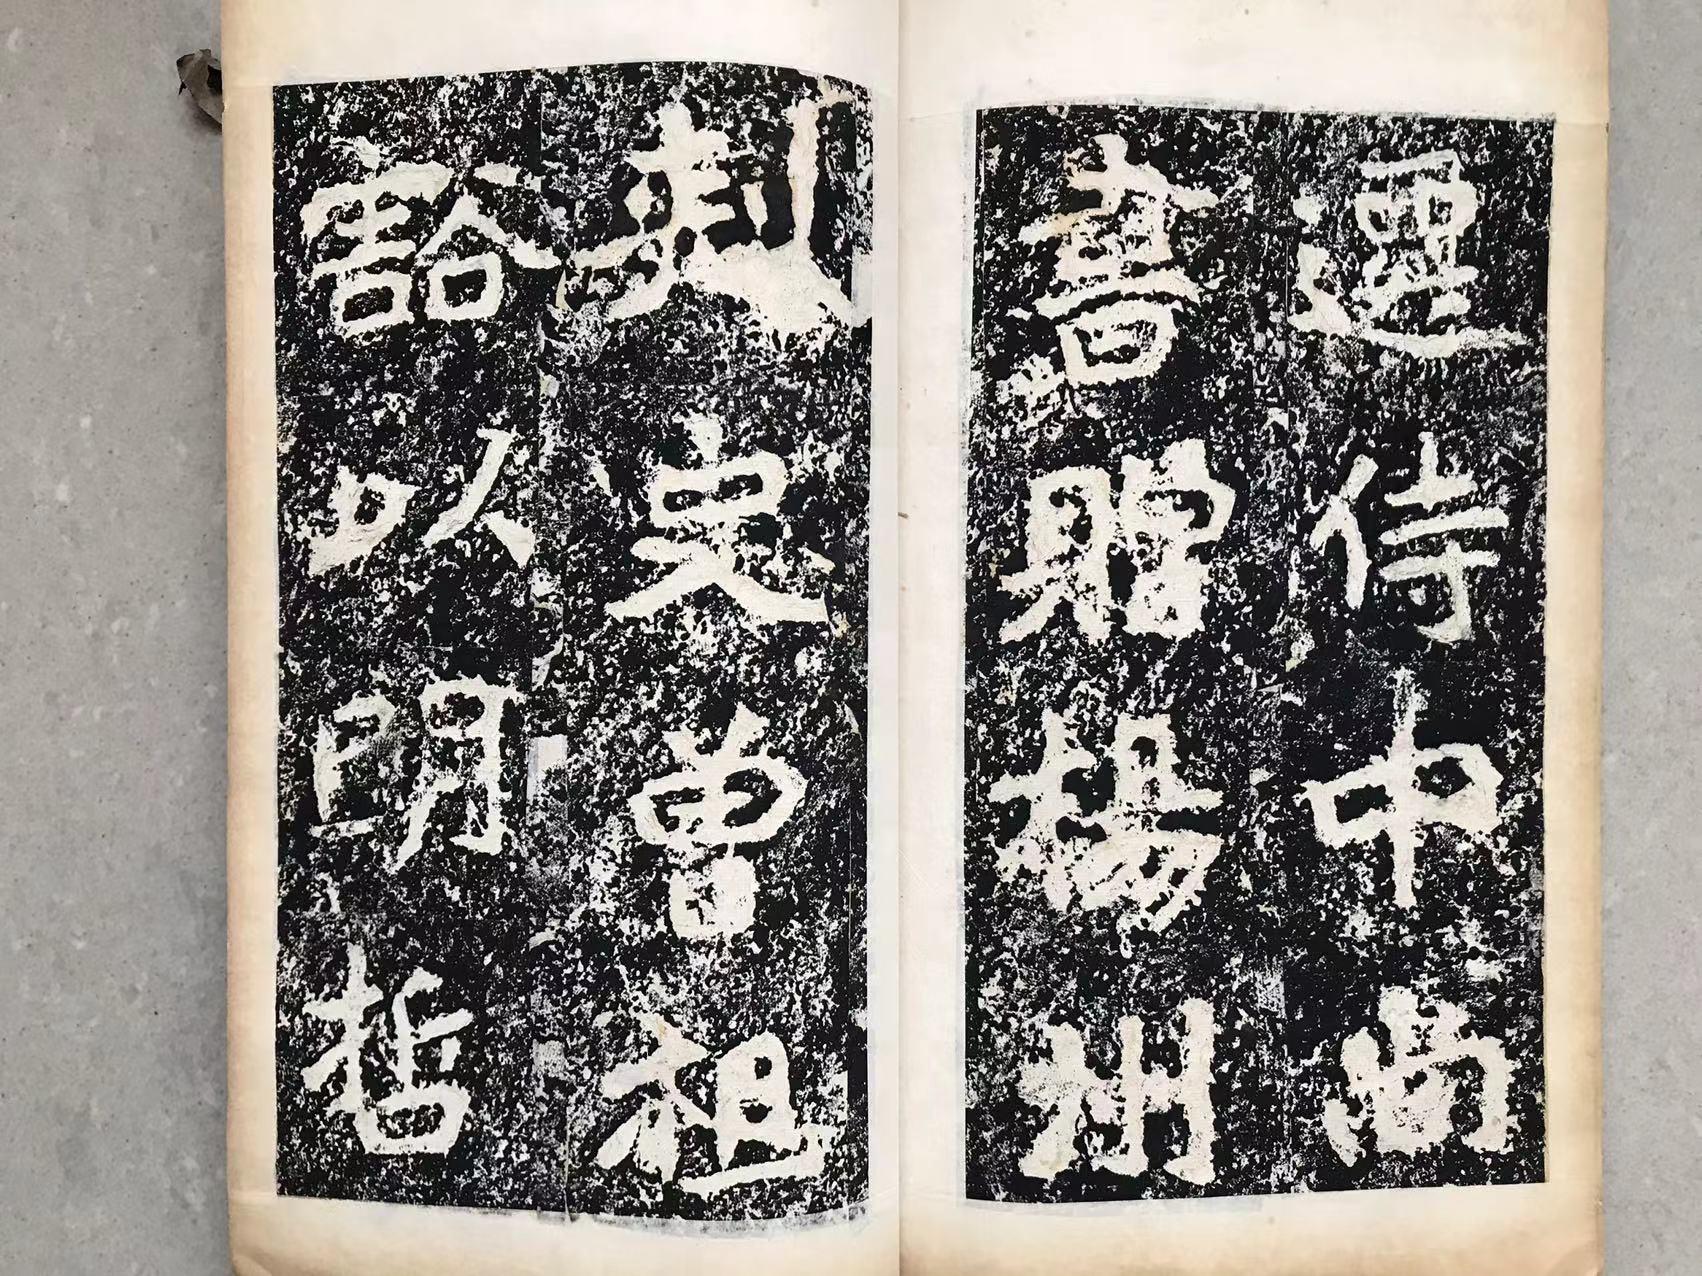 遷侍中尚
書贈揚州
刺史曾祖
豁以明哲